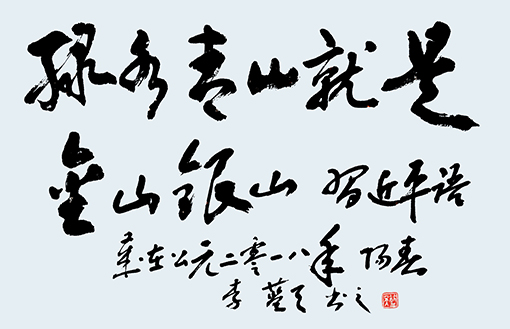 绿水青山就是
金山银山 習近平语
岁在公元二零一八年 阳春
李蓝天书之